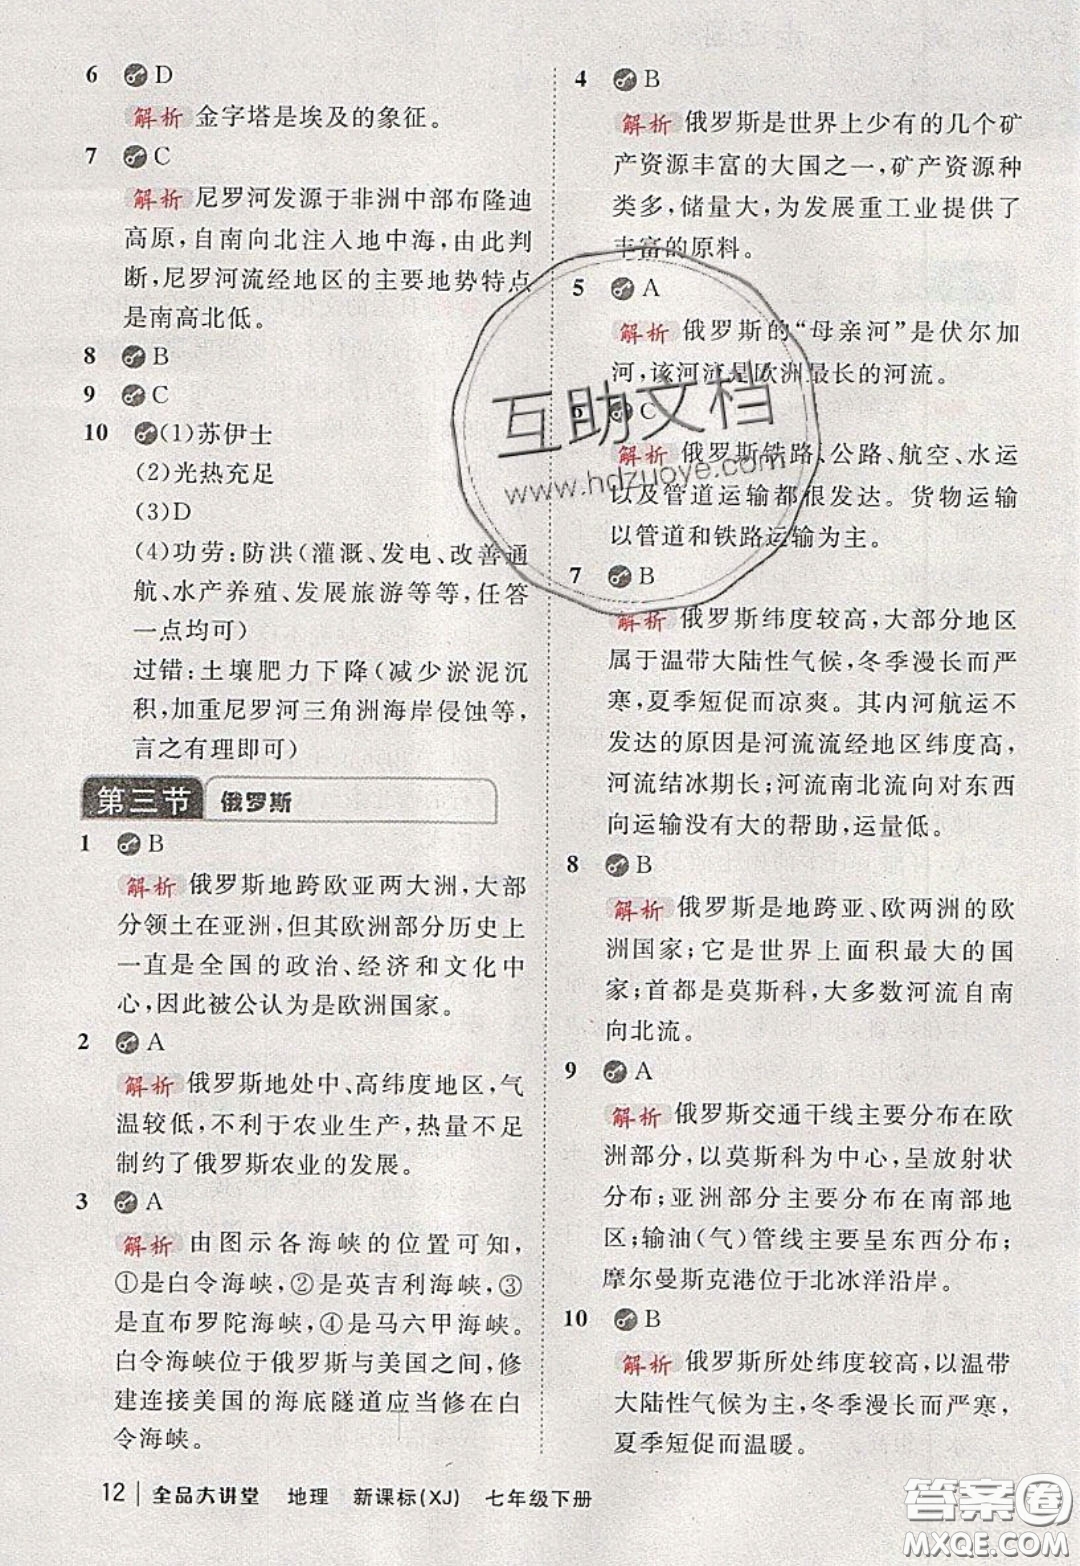 6 D
解析 金字塔是埃及的象征。
7 C
解析 尼罗河发源于非洲中部布隆迪
高原,自南向北注入地中海,由此判
断,尼罗河流经地区的主要地势特点
是南高北低。
8 B
9 C
10 (1)苏伊士
(2)光热充足
(3)D
(4)功劳:防洪(灌溉、发电、改善通
航、水产养殖、发展旅游等等,任答
一点均可)
过错:土壤肥力下降(减少淤泥沉
积,加重尼罗河三角洲海岸侵蚀等,
言之有理即可)
第三节 俄罗斯
1 B
解析 俄罗斯地跨欧亚两大洲,大部
分领土在亚洲,但其欧洲部分历史上
一直是全国的政治、经济和文化中
心,因此被公认为是欧洲国家。
2 A
解析 俄罗斯地处中、高纬度地区,气
温较低,不利于农业生产,热量不足
制约了俄罗斯农业的发展。
3 A
解析 由图示各海峡的位置可知,
①是白令海峡,②是英吉利海峡,③
是直布罗陀海峡,④是马六甲海峡。
白令海峡位于俄罗斯与美国之间,修
建连接美国的海底隧道应当修在白
令海峡。
4 B
解析 俄罗斯是世界上少有的几个矿
产资源丰富的大国之一,矿产资源种
类多,储量大,为发展重工业提供了
丰富的原料。
5 A
解析 俄罗斯的“母亲河”是伏尔加
河,该河流是欧洲最长的河流。
6 C
解析 俄罗斯铁路、公路、航空、水运
以及管道运输都很发达。货物运输
以管道和铁路运输为主。
7 B
解析 俄罗斯纬度较高,大部分地区
属于温带大陆性气候,冬季漫长而严
寒,夏季短促而凉爽。其内河航运不
发达的原因是河流流经地区纬度高,
河流结冰期长;河流南北流向,对东西
向运输没有大的帮助,运量低。
8 B
解析 俄罗斯是地跨亚、欧两洲的欧
洲国家;它是世界上面积最大的国
家;首都是莫斯科,大多数河流自南
向北流。
9 A
解析 俄罗斯交通干线主要分布在欧
洲部分,以莫斯科为中心,呈放射状
分布;亚洲部分主要分布在南部地
区;输油(气)管线主要呈东西分布;
摩尔曼斯克港位于北冰洋沿岸。
10 B
解析 俄罗斯所处纬度较高,以温带
大陆性气候为主,冬季漫长而严寒,
夏季短促而温暖。
12 全品大讲堂 地理 新课标(XJ) 七年级下册
互助文档
www.hdzuoye.com
答案圈
MXQE.COM